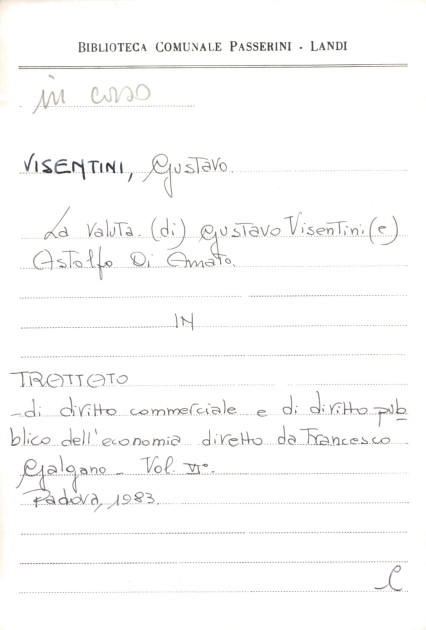 BIBLIOTECA COMUNALE PASSERINI - LANDI
in corso
VISENTINI, Gustavo.
La valuta. (di) Gustavo Visentini (e)
Astolfo Di Amato.
IN
TRATTATO
- di diritto commerciale e di diritto pub
blico dell'economia diretto da Francesco
Galgano - Vol. VI°.
Padova, 1983.